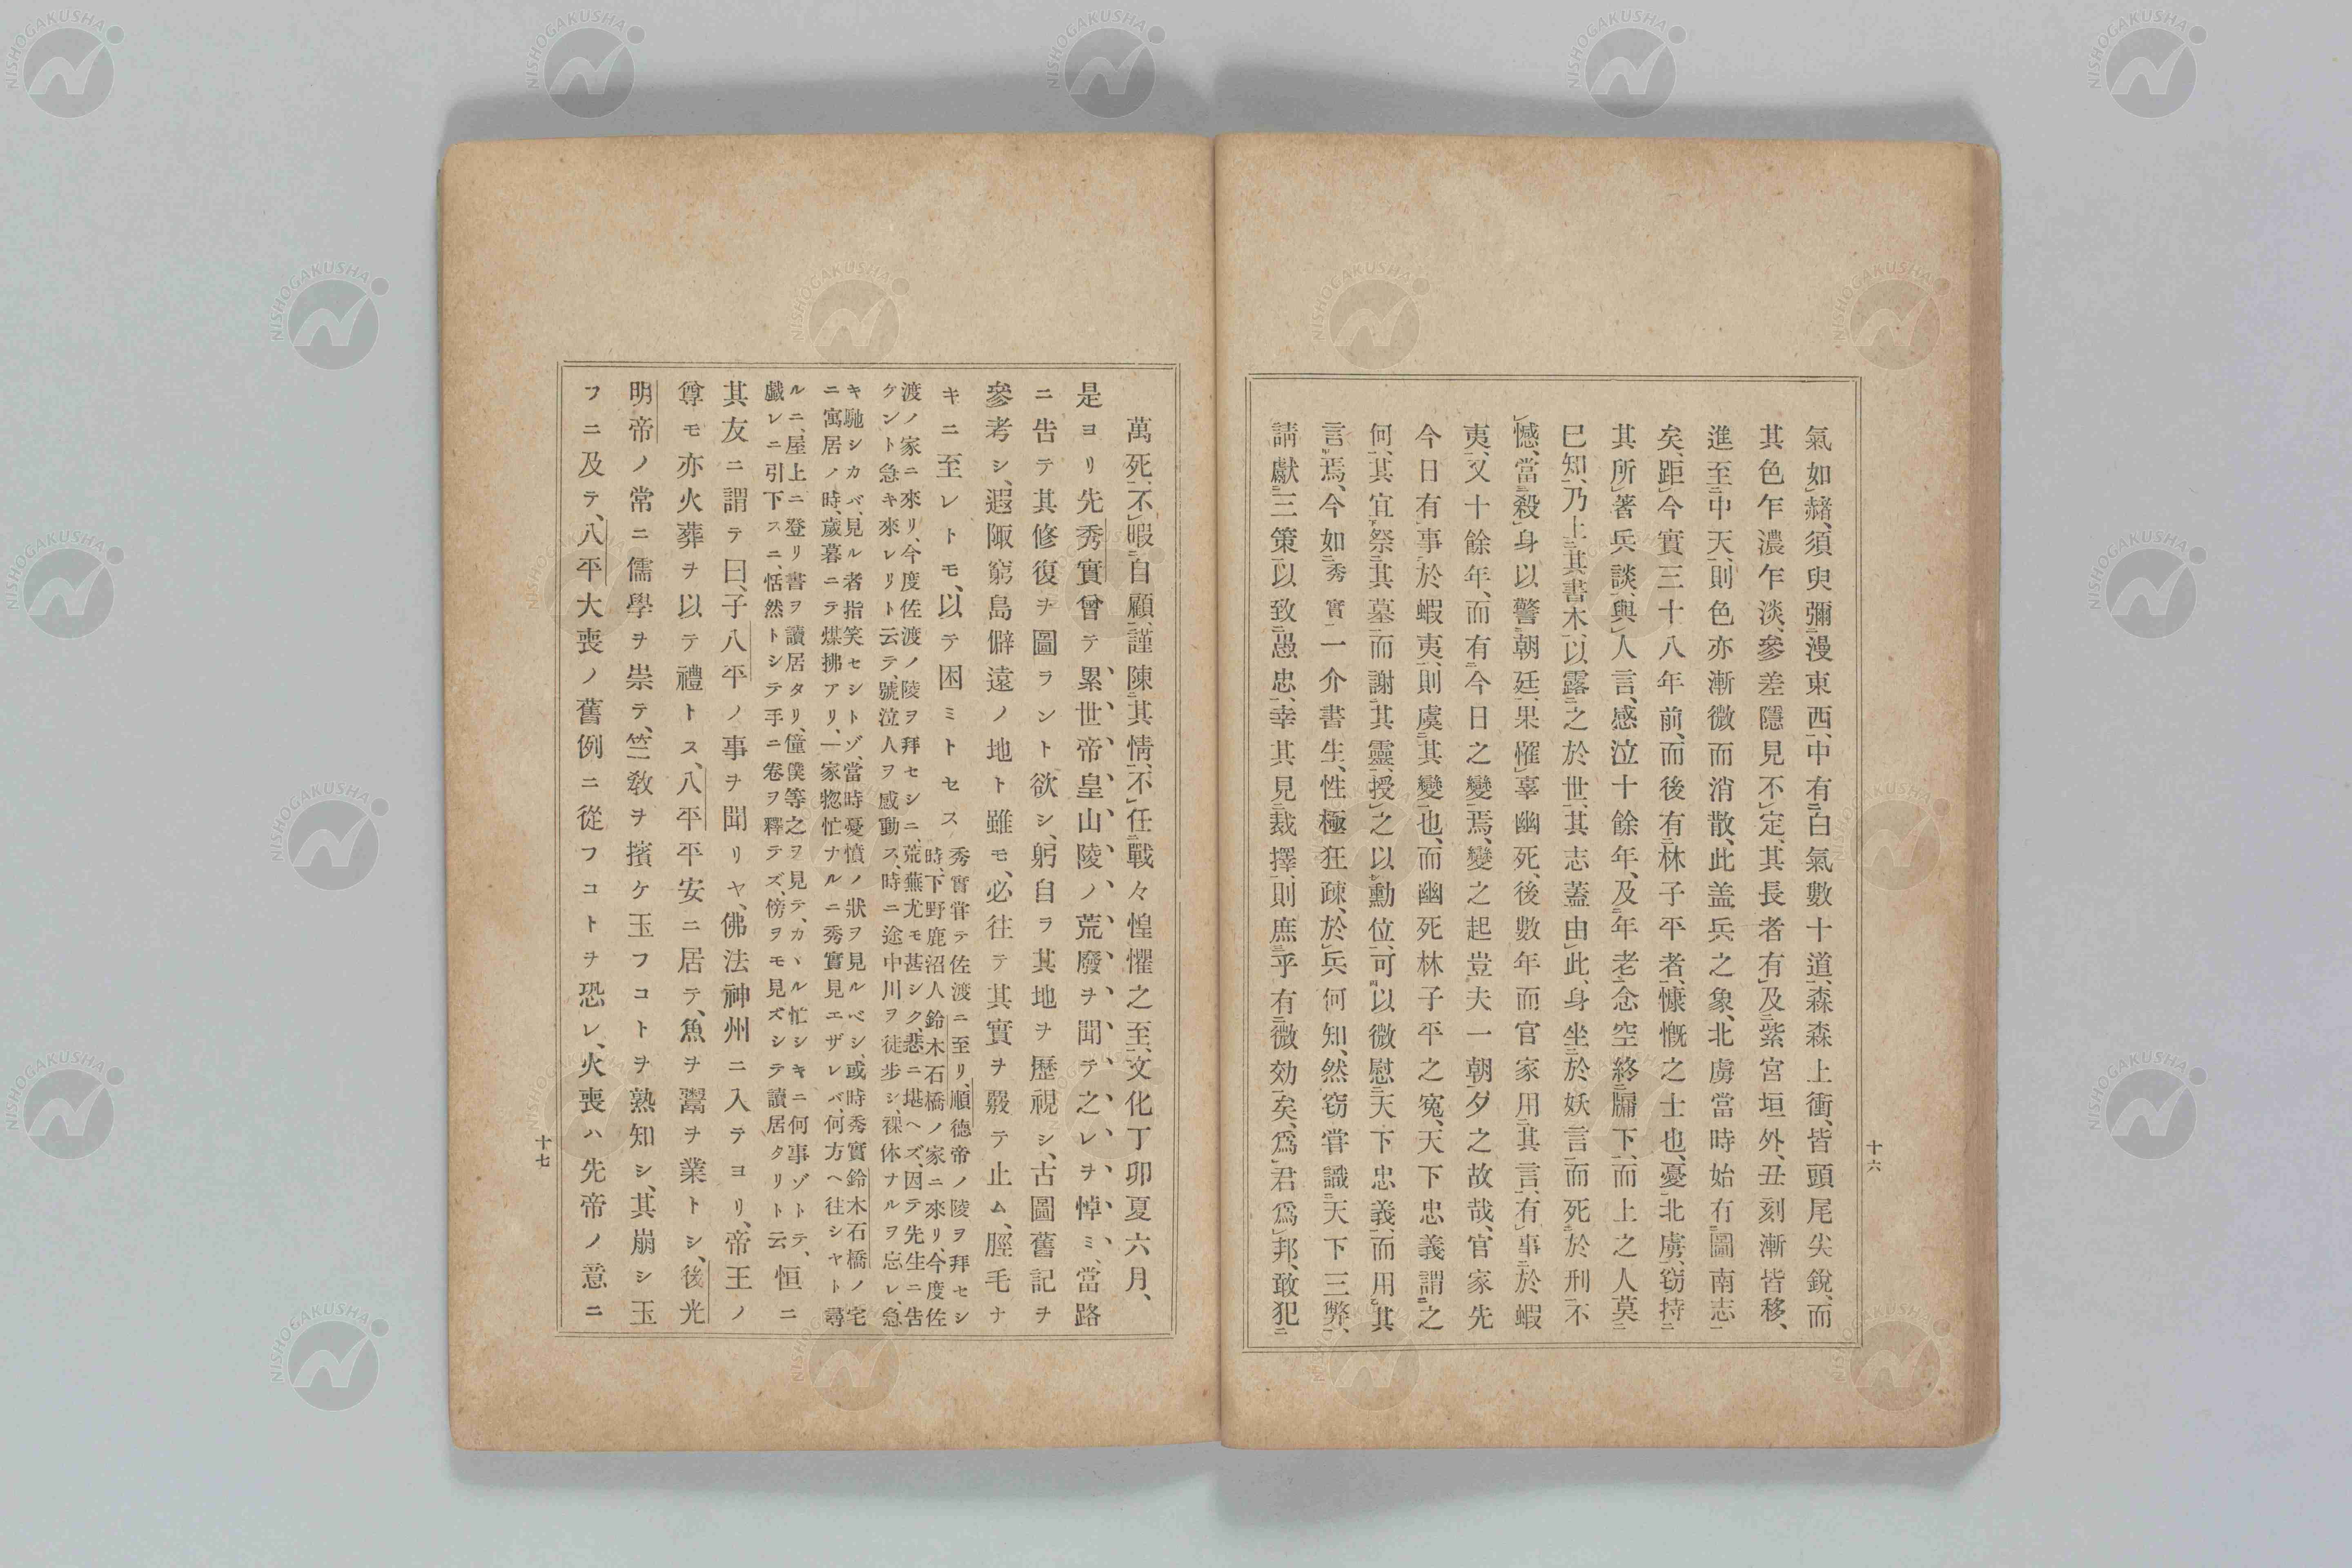 氣如赭、須臾彌漫東西、中有白氣數十道、森森上衝、皆頭尾尖銳、而
其色乍濃乍淡、參差隱見不定、其長者有及紫宮垣外、丑刻漸皆移、
進至中天、則色亦漸微而消散、此盖兵之象、北虜當時始有圖南志
矣、距今實三十八年前、而後有林子平者、慷慨之士也、憂北虜、窃持
其所著兵談、與人言、感泣十餘年、及年老、念空終牖下、而上之人莫
已知、乃上其書木、以露之於世、其志蓋由此、身坐於妖言而死於刑不
憾、當殺身以警朝廷、果懼辜幽死、後數年而官家用其言、有事於蝦
夷、又十餘年、而有今日之變焉、變之起豈夫一朝夕之故哉、官家先
今日有事於蝦夷、則虞其變也、而幽死林子平之寃、天下忠義謂之
何、其宜祭其墓而謝其靈、授之以勳位、可以微慰天下忠義、而用其
言焉、今如秀實一介書生、性極狂疎、於兵何知、然窃嘗識天下三弊、
請獻三策、以致愚忠、幸其見裁擇、則庶乎有微効矣、爲君爲邦、敢犯
十六
萬死、不暇自顧、謹陳其情、不任戰々惶懼之至、文化丁卯夏六月、
是ヨリ先秀實曾テ累世帝皇山陵ノ荒廢ヲ聞テ之レヲ悼ミ、當路
ニ告テ其修復ヲ圖ラント欲シ、躬自ラ其地ヲ歷視シ、古圖舊記ヲ
參考シ、遐陬窮島僻遠ノ地ト雖モ、必往テ其實ヲ覈テ止ム、脛毛ナ
キニ至レトモ、以テ困ミトセス
秀實甞テ佐渡ニ至リ、順德帝ノ陵ヲ拜セシ
時、下野鹿沼人鈴木石橋ノ家ニ來リ、今度佐
渡ノ家ニ來リ、今度佐渡ノ陵ヲ拜セシニ、荒蕪尤モ甚シク、悲ニ堪ヘズ、因テ先生ニ告
ケント急キ來レリト云テ、號泣人ヲ感動ス、時ニ途中川ヲ徒步シ、裸体ナルヲ忘レ、急
キ馳シカバ、見ル者指笑セシトゾ、當時憂憤ノ狀ヲ見ルベシ、或時秀實鈴木石橋ノ宅
ニ寓居ノ時、歲暮ニテ煤拂アリ、一家惣忙ナルニ秀實見エザレバ、何方ヘ往シヤト尋
ルニ、屋上ニ登リ書ヲ讀居タリ、僮僕等之ヲ見テ、カヽル忙シキニ何事ゾトテ、
戲レニ引下スニ、恬然トシテ手ニ卷ヲ釋テズ、傍ヲモ見ズシテ讀居タリト云、
恒ニ
其友ニ謂テ曰、子八平ノ事ヲ聞リヤ、佛法神州ニ入テヨリ、帝王ノ
尊モ亦火葬ヲ以テ禮トス、八平平安ニ居テ、魚ヲ鬻ヲ業トシ、後光
明帝ノ常ニ儒學ヲ崇テ、竺敎ヲ擯ケ玉フコトヲ熟知シ、其崩シ玉
フニ及テ、八平大喪ノ舊例ニ從フコトヲ恐レ、火喪ハ先帝ノ意ニ
十七